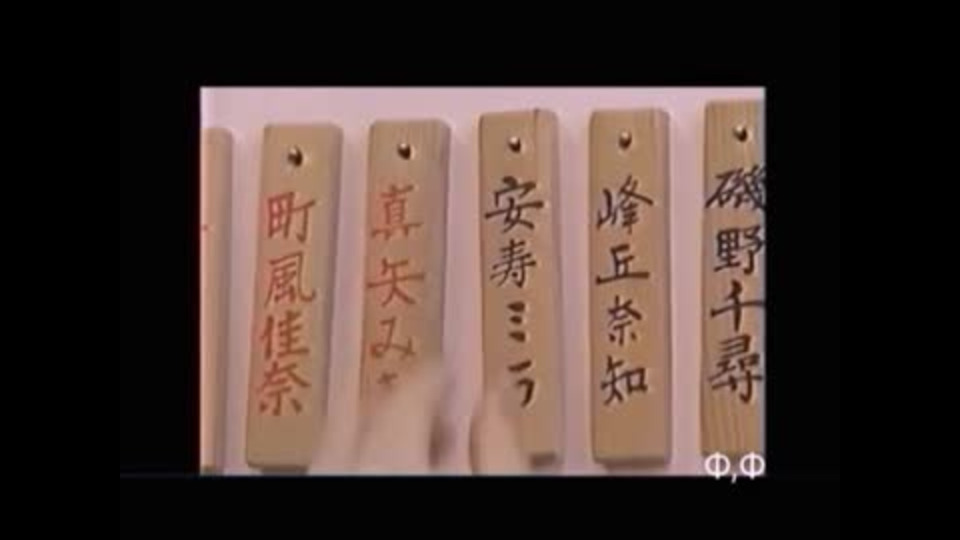 磯野千尋
峰丘奈知
安寿ミラ
真矢み
町風佳奈
Ф,Ф